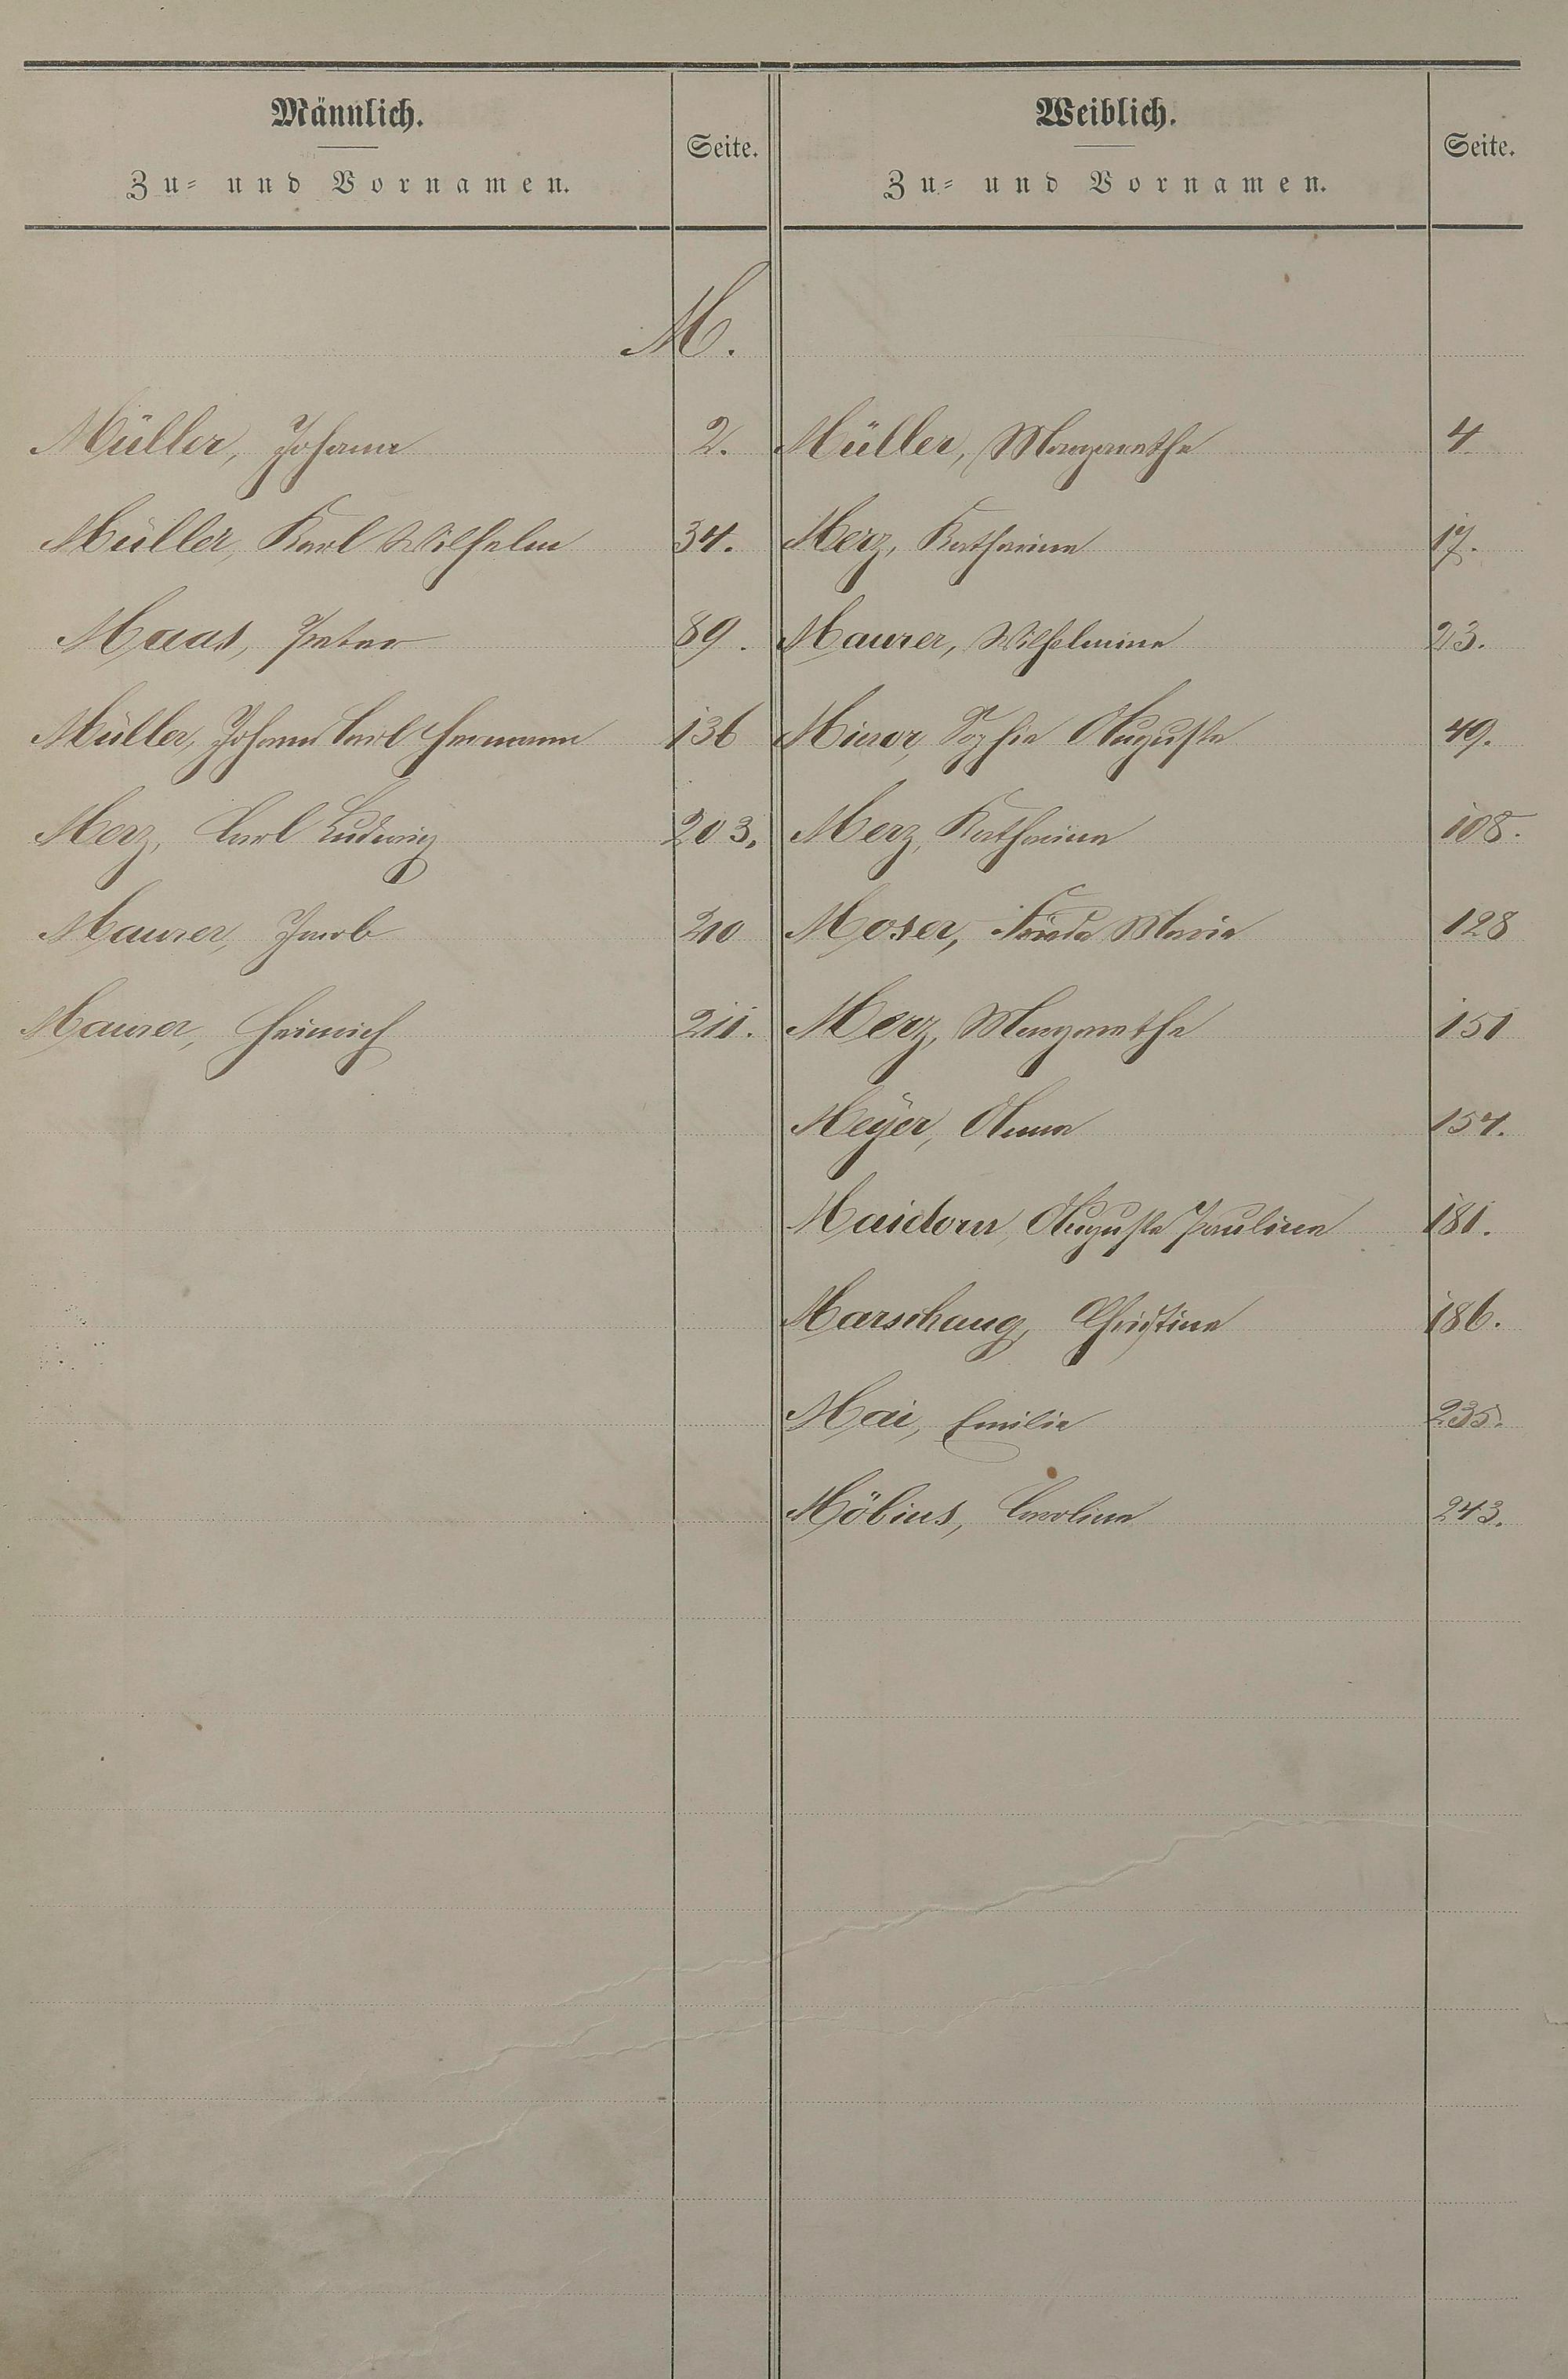 Männlich.
Zu- und Vornamen.
Seite.
Weiblich.
Zu- und Vornamen.
Seite.
M.
Müller, Johann 2.
Müller, Karl Wilhelm 34.
Maas, Peter 89.
Müller, Johann Carl Hermann 136
Merz, Carl Ludwig 203.
Maurer, Jacob 210
Maurer, Heinrich 211.
Müller, Margarethe 4
Merz, Katharina 17.
Maurer, Wilhelmine 23.
Minor, Sophie Auguste 49.
Merz, Katharina 108.
Moser, Frieda Maria 128
Merz, Margarethe 151
Meÿer, Anna 154.
Maidorn, Auguste Pauline 181.
Marschang, Christine 186.
Mai, Emilie 235.
Möbius, Caroline 243.